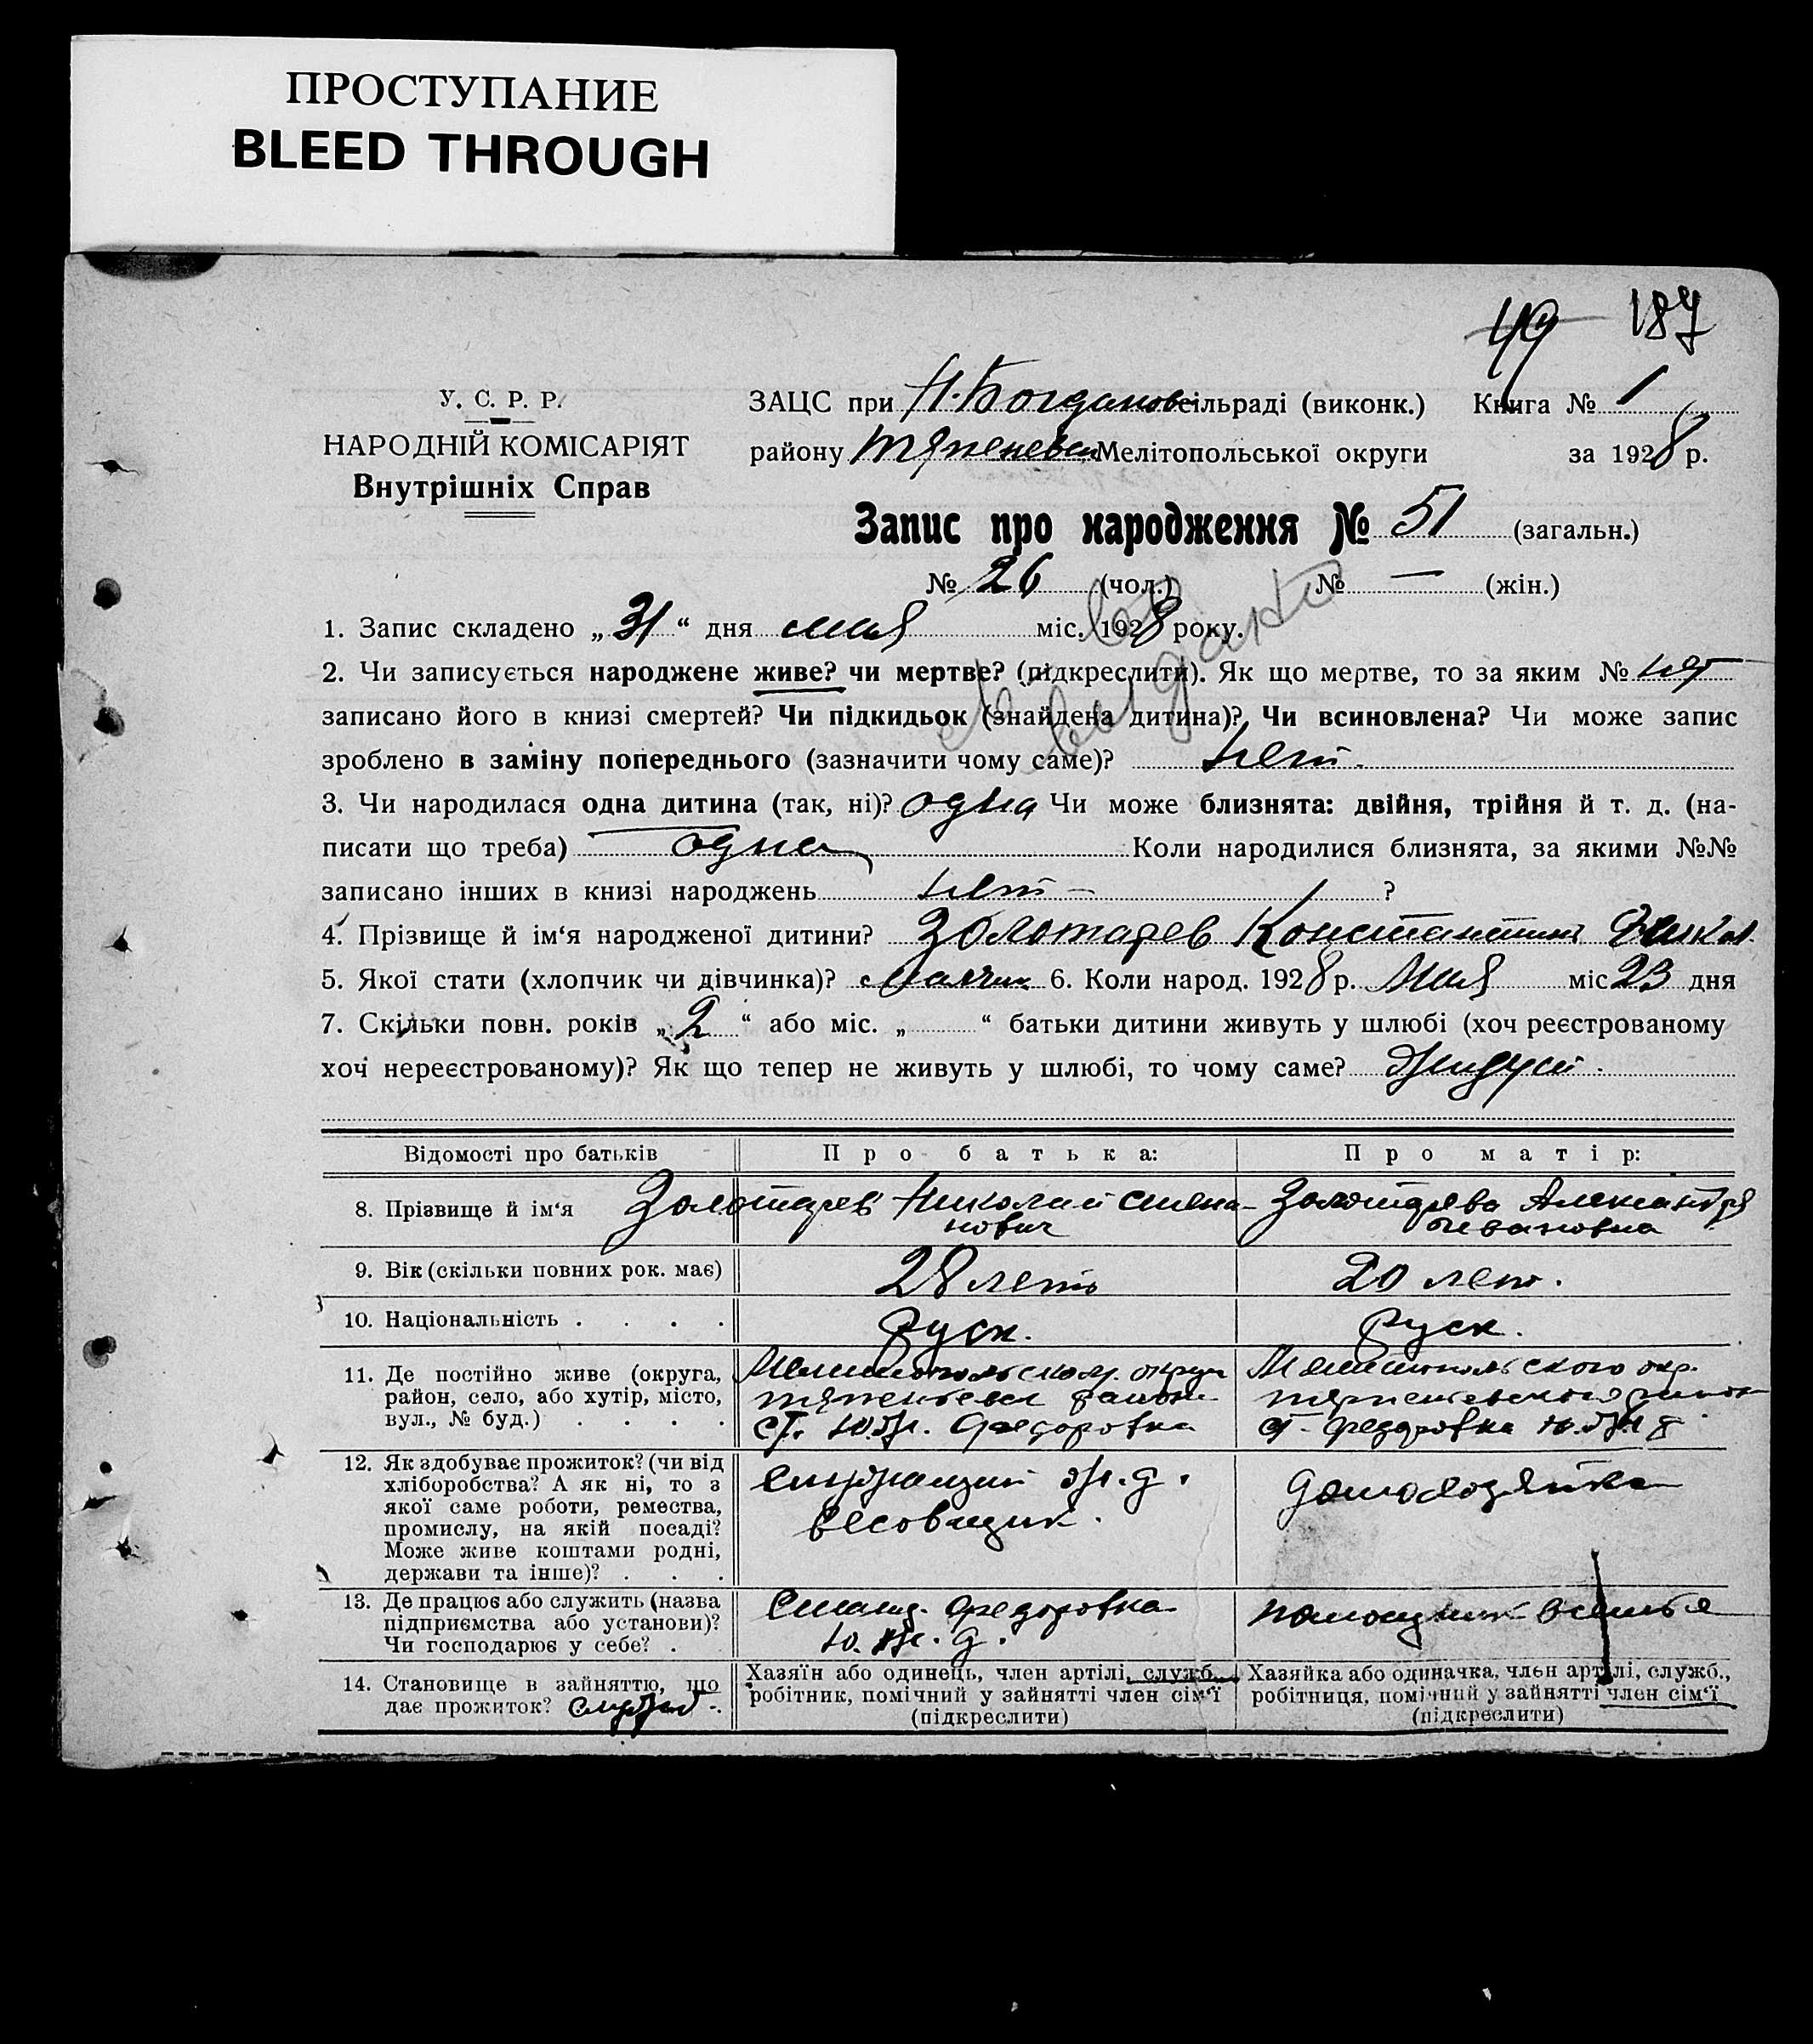 ПРОСТУПАНИЕ
BLEED THROUGH
49 187
У. С. Р. Р.
НАРОДНІЙ КОМІСАРІЯТ
Внутрішніх Справ
ЗАЦС при Н.Богдановсільраді (виконк.) Книга № 1
району Мелітопольської округи за 1928 р.
Запис про народження № 51 (загальн.)
№ 26 (чол.) № — (жін.)
1. Запис складено „31“ дня мая міс. 1928 року.
2. Чи записується народжене живе? чи мертве? (підкреслити). Як що мертве, то за яким № нет
записано його в книзі смертей? Чи підкидьок (знайдена дитина)? Чи всиновлена? Чи може запис
зроблено в заміну попереднього (зазначити чому саме)? нет.
3. Чи народилася одна дитина (так, ні)? одна Чи може близнята: двійня, трійня й т. д. (на-
писати що треба) одна Коли народилися близнята, за якими №№
записано інших в книзі народжень нет — ?
4. Прізвище й ім‘я народженої дитини? Золотарев Константин
5. Якої стати (хлопчик чи дівчинка)? 6. Коли народ. 1928 р. Мая міс 23 дня
7. Скільки повн. років „2“ або міс. „ “ батьки дитини живуть у шлюбі (хоч реєстрованому
хоч нереєстрованому)? Як що тепер не живуть у шлюбі, то чому саме? живут.
Відомості про батьків
Про батька:
Про матір:
8. Прізвище й ім‘я
Золотарев Николай Степа-
нович
Золотарева Александра
Ивановна
9. Вік (скільки повних рок. має)
28 лет
20 лет.
10. Національність . . . .
Руск.
Руск.
11. Де постійно живе (округа,
район, село, або хутір, місто,
вул., № буд.) . . . .
Мелитопольском. округ
район
ст. Ю.Ж. Федоровка
Мелитопольского окр.
ст. Федоровка Ю.Ж.Д
12. Як здобуває прожиток? (чи від
хліборобства? А як ні, то з
якої саме роботи, ремества,
промислу, на якій посаді?
Може живе коштами родні,
держави та інше)? . . .
Служащий Ж.Д.
весовщик.
домохозяйка
13. Де працює або служить (назва
підприємства або установи)?
Чи господарює у себе? .
Станц. Федоровка
Ю.Ж.Д.
помощник в семье
14. Становище в зайняттю, що
дає прожиток?
Хазяїн або одинець, член артілі, служб.,
робітник, помічний у зайнятті член сім‘ї
(підкреслити)
Хазяйка або одиначка, член артілі, служб.,
робітниця, помічний у зайнятті член сім‘ї
(підкреслити)